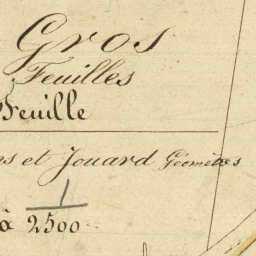 Gros
Feuilles
Feuille
et Jouard Géomètres
1
à 2500